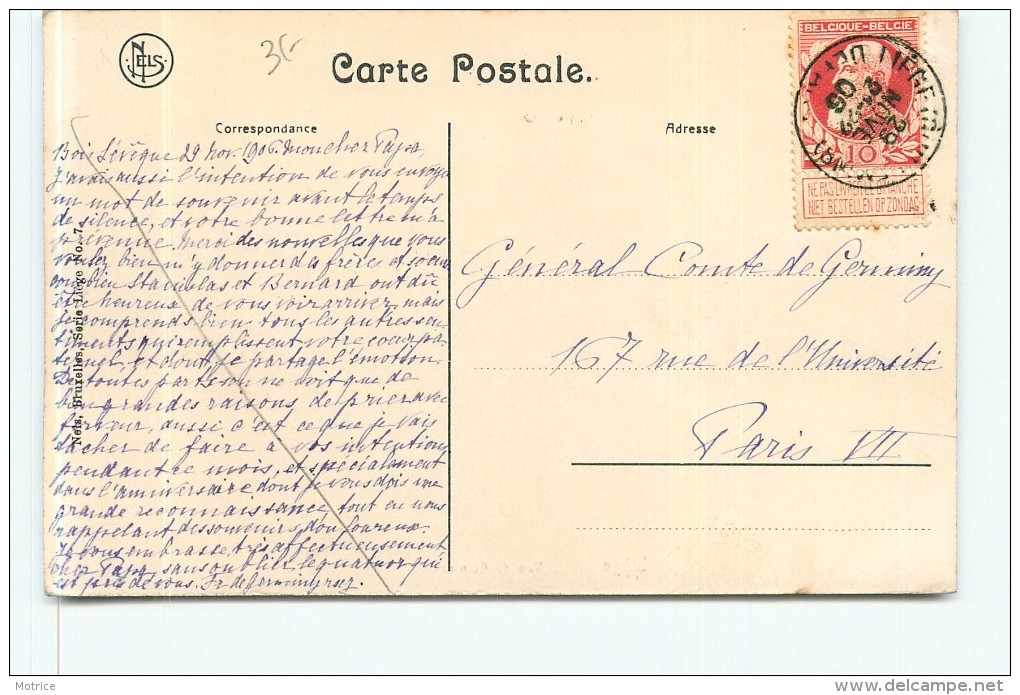 NELS
3f-
Carte Postale.
BELGIQUE-BELGIE
10
NE PAS LIVRER LE DIMANCHE
NIET BESTELLEN OP ZONDAG
LIÉGE
Correspondance
Bois Lévêque 29 Nov. 1906. Mon cher Papa,
J'avais aussi l'intention de vous envoyer
un mot de souvenir avant le temps
de silence, et votre bonne lettre m'a
prévenue. Merci des nouvelles que vous
voulez bien m'y donner des frères et soeurs
combien Stanislas et Bernard ont dû
être heureux de vous voir arriver, mais
je comprends bien tous les autres sen-
timents qui remplissent votre coeur pa-
ternel, et dont je partage l'émotion.
De toutes parts on ne voit que de
bien grandes raisons de prier avec
ferveur, aussi c'est ce que je vais
tâcher de faire à vos intentions
pendant ce mois, et spécialement
dans l'anniversaire dont je vous dois une
grande reconnaissance, tout en nous
rappelant des souvenirs douloureux.
Je vous embrasse très affectueusement
cher Papa, sans oublier le quatuor qui
est près de vous. Fr de Germiny rscj.
Nels, Bruxelles, Serie Liége No. 7.
Adresse
Général Comte de Germiny
167 rue de l'Université
Paris VII
Motrice
www.delcampe.net